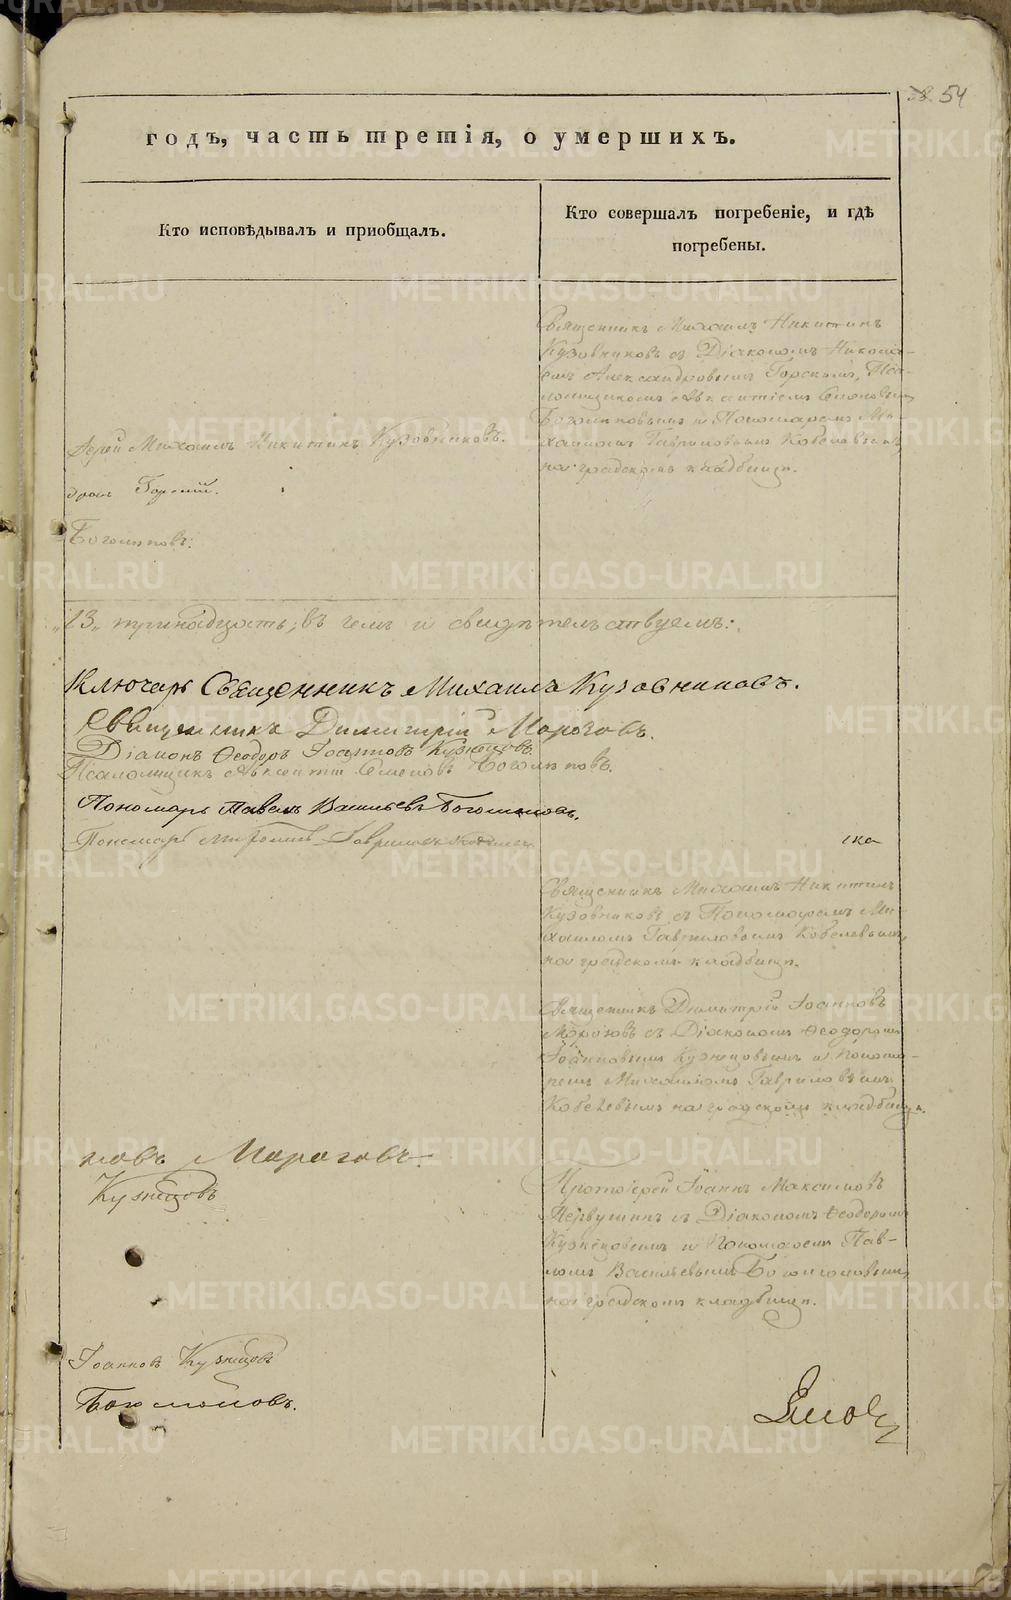 54
годъ, часть третія, о умершихъ.
Кто исповѣдывалъ и пріобщалъ.
Кто совершалъ погребеніе, и гдѣ
погребены.
Священникъ Михаилъ Никитинъ
Кузовниковъ съ Діакономъ Никола-
емъ Александровымъ Горскимъ, Пса-
ломщикомъ Авксентіемъ Семеновымъ
Боголеповымъ и Пономаремъ Ми-
хаиломъ Гавриловымъ Кобелевымъ
на градскомъ кладбищѣ.
Іерей Михаилъ Никитинъ Кузовниковъ.
Горскій.
Боголеповъ.
„13„ тринадцать; въ чемъ и свидѣтельствуемъ:
Ключарь Священникъ Михаилъ Кузовниковъ.
Священникъ Димитрій Морозовъ.
Діаконъ Ѳеодоръ Іоанновъ Кузнецовъ.
Псаломщикъ Авксентій Семеновъ Боголеповъ.
Пономарь Павелъ Васильевъ Богомоловъ.
Пономарь Гавриловъ Кобелевъ
ика
Священникъ Михаилъ Никитинъ
Кузовниковъ съ Пономаремъ Ми-
хаиломъ Гавриловымъ Кобелевымъ
на градскомъ кладбищѣ.
Священникъ Димитрій Іоанновъ
Морозовъ съ Діакономъ Ѳеодоромъ
Іоанновымъ Кузнецовымъ и Понома-
ремъ Михаиломъ Гавриловымъ
Кобелевымъ на градскомъ кладбищѣ.
новъ Морозовъ.
Кузнецовъ
Протоіерей Іоаннъ Максимовъ
Первушинъ съ Діакономъ Ѳеодоромъ
Кузнецовымъ и Пономаремъ Пав-
ломъ Васильевымъ Богомоловымъ
на градскомъ кладбищѣ.
Іоанновъ Кузнецовъ
Богомоловъ.
METRIKI.GASO-URAL.RU